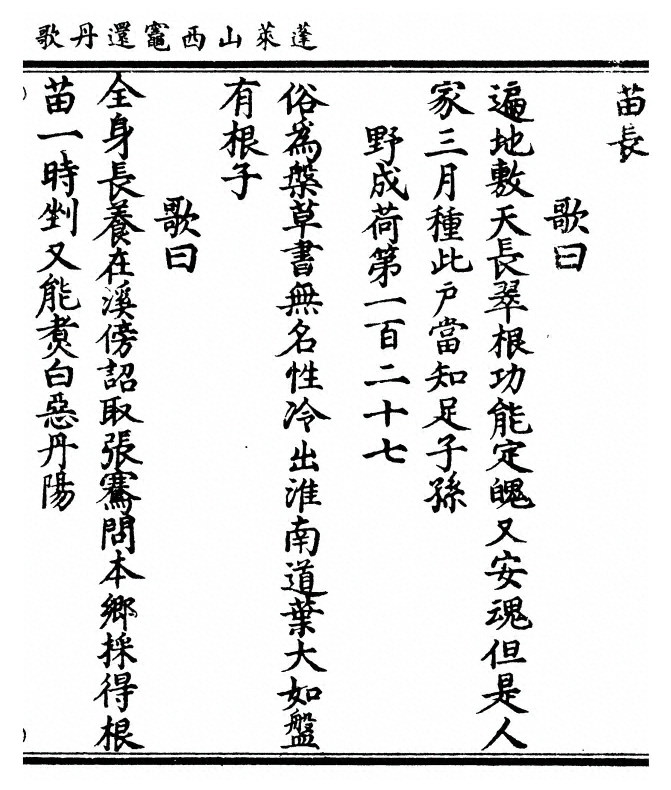 蓬萊山西竈還丹歌
苗長
歌曰
遍地敷天長翠根功能定魄又安魂但是人
家三月種此戶當知足子孫
野成荷第一百二十七
俗為槃草書無名性冷出淮南道葉大如盤
有根子
歌曰
全身長養在溪傍詔取張騫問本鄉採得根
苗一時剉又能煑白惡丹陽